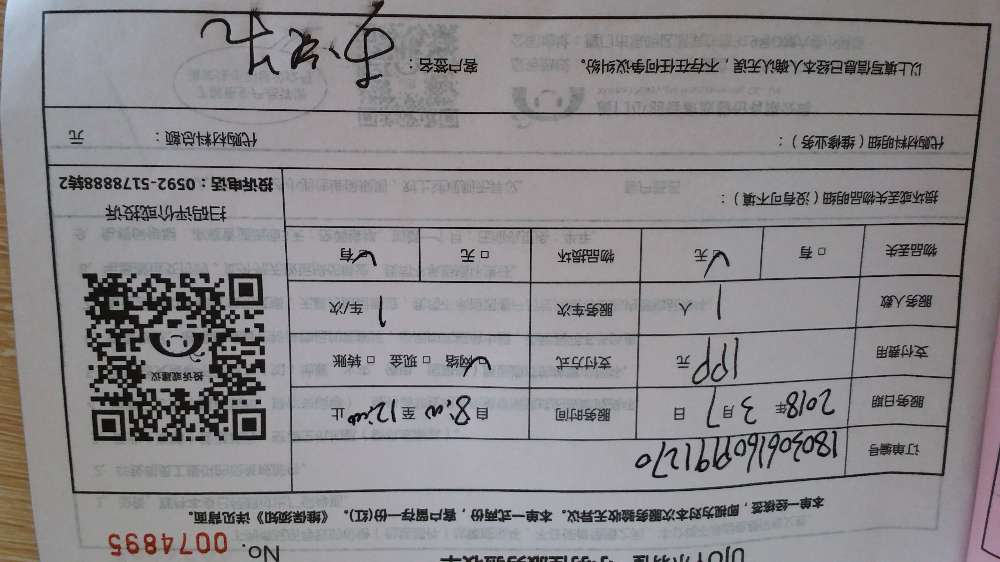 No. 0074895
本单一经核签，即视为对本次服务验收无异议。本单一式两份，客户留存一份(红)。《维保须知》详见背面。
订单编号 1803061609991270
服务日期 2018年 3月 7日 服务时间 自 8:00 至 12:00 止
支付费用 100 元 支付方式 网络 □ 现金 □ 转账
服务人数 1 人 服务车次 1 车/次
物品丢失 □ 有 无 物品损坏 □ 无 有
损坏或丢失物品明细（没有可不填）：
投诉或建议
扫码评价或投诉
投诉电话：0592-5178888转2
代购材料明细（维修业务）：
代购材料总额： 元
以上填写信息已经本人确认无误，不存在任何争议纠纷。 客户签名：